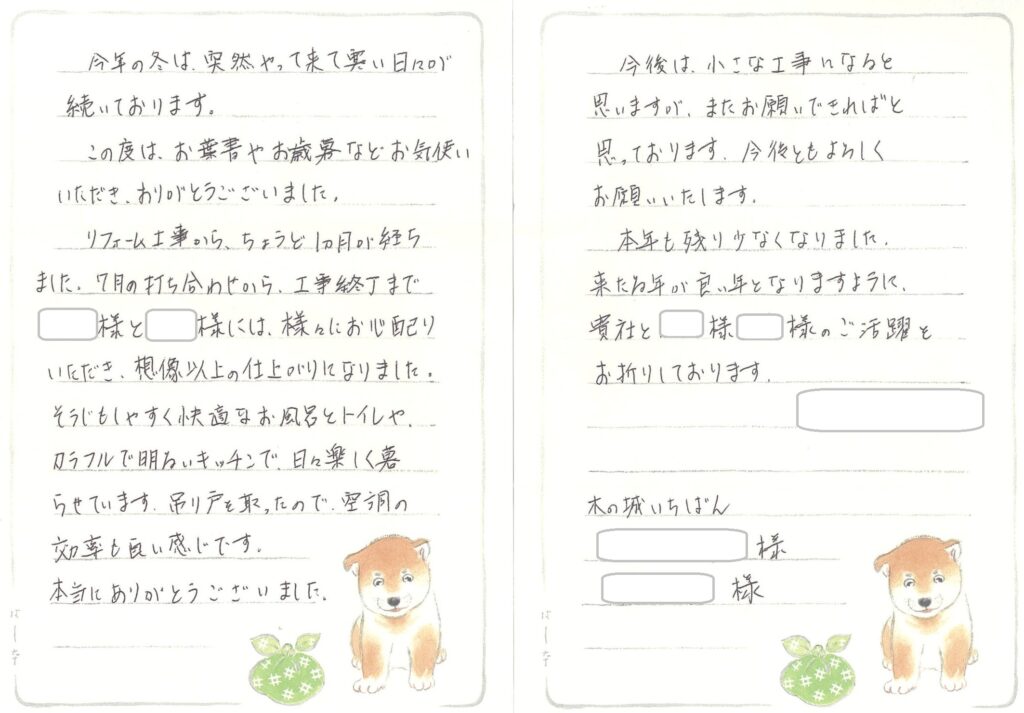 今年の冬は、突然やって来て寒い日々が
続いております。
この度は、お葉書やお歳暮などお気使い
いただき、ありがとうございました。
リフォーム工事から、ちょうど1カ月が経ち
ました。7月の打ち合わせから、工事終了まで
様と様には、様々にお心配り
いただき、想像以上の仕上がりになりました。
そうじもしやすく快適なお風呂とトイレや、
カラフルで明るいキッチンで、日々楽しく暮
らせています。吊り戸を取ったので、空調の
効率も良い感じです。
本当にありがとうございました。
今後は、小さな工事になると
思いますが、またお願いできればと
思っております。今後ともよろしく
お願いいたします。
本年も残り少なくなりました。
来たる年が良い年となりますように、
貴社と様様のご活躍を
お祈りしております。
木の城いちばん
様
様